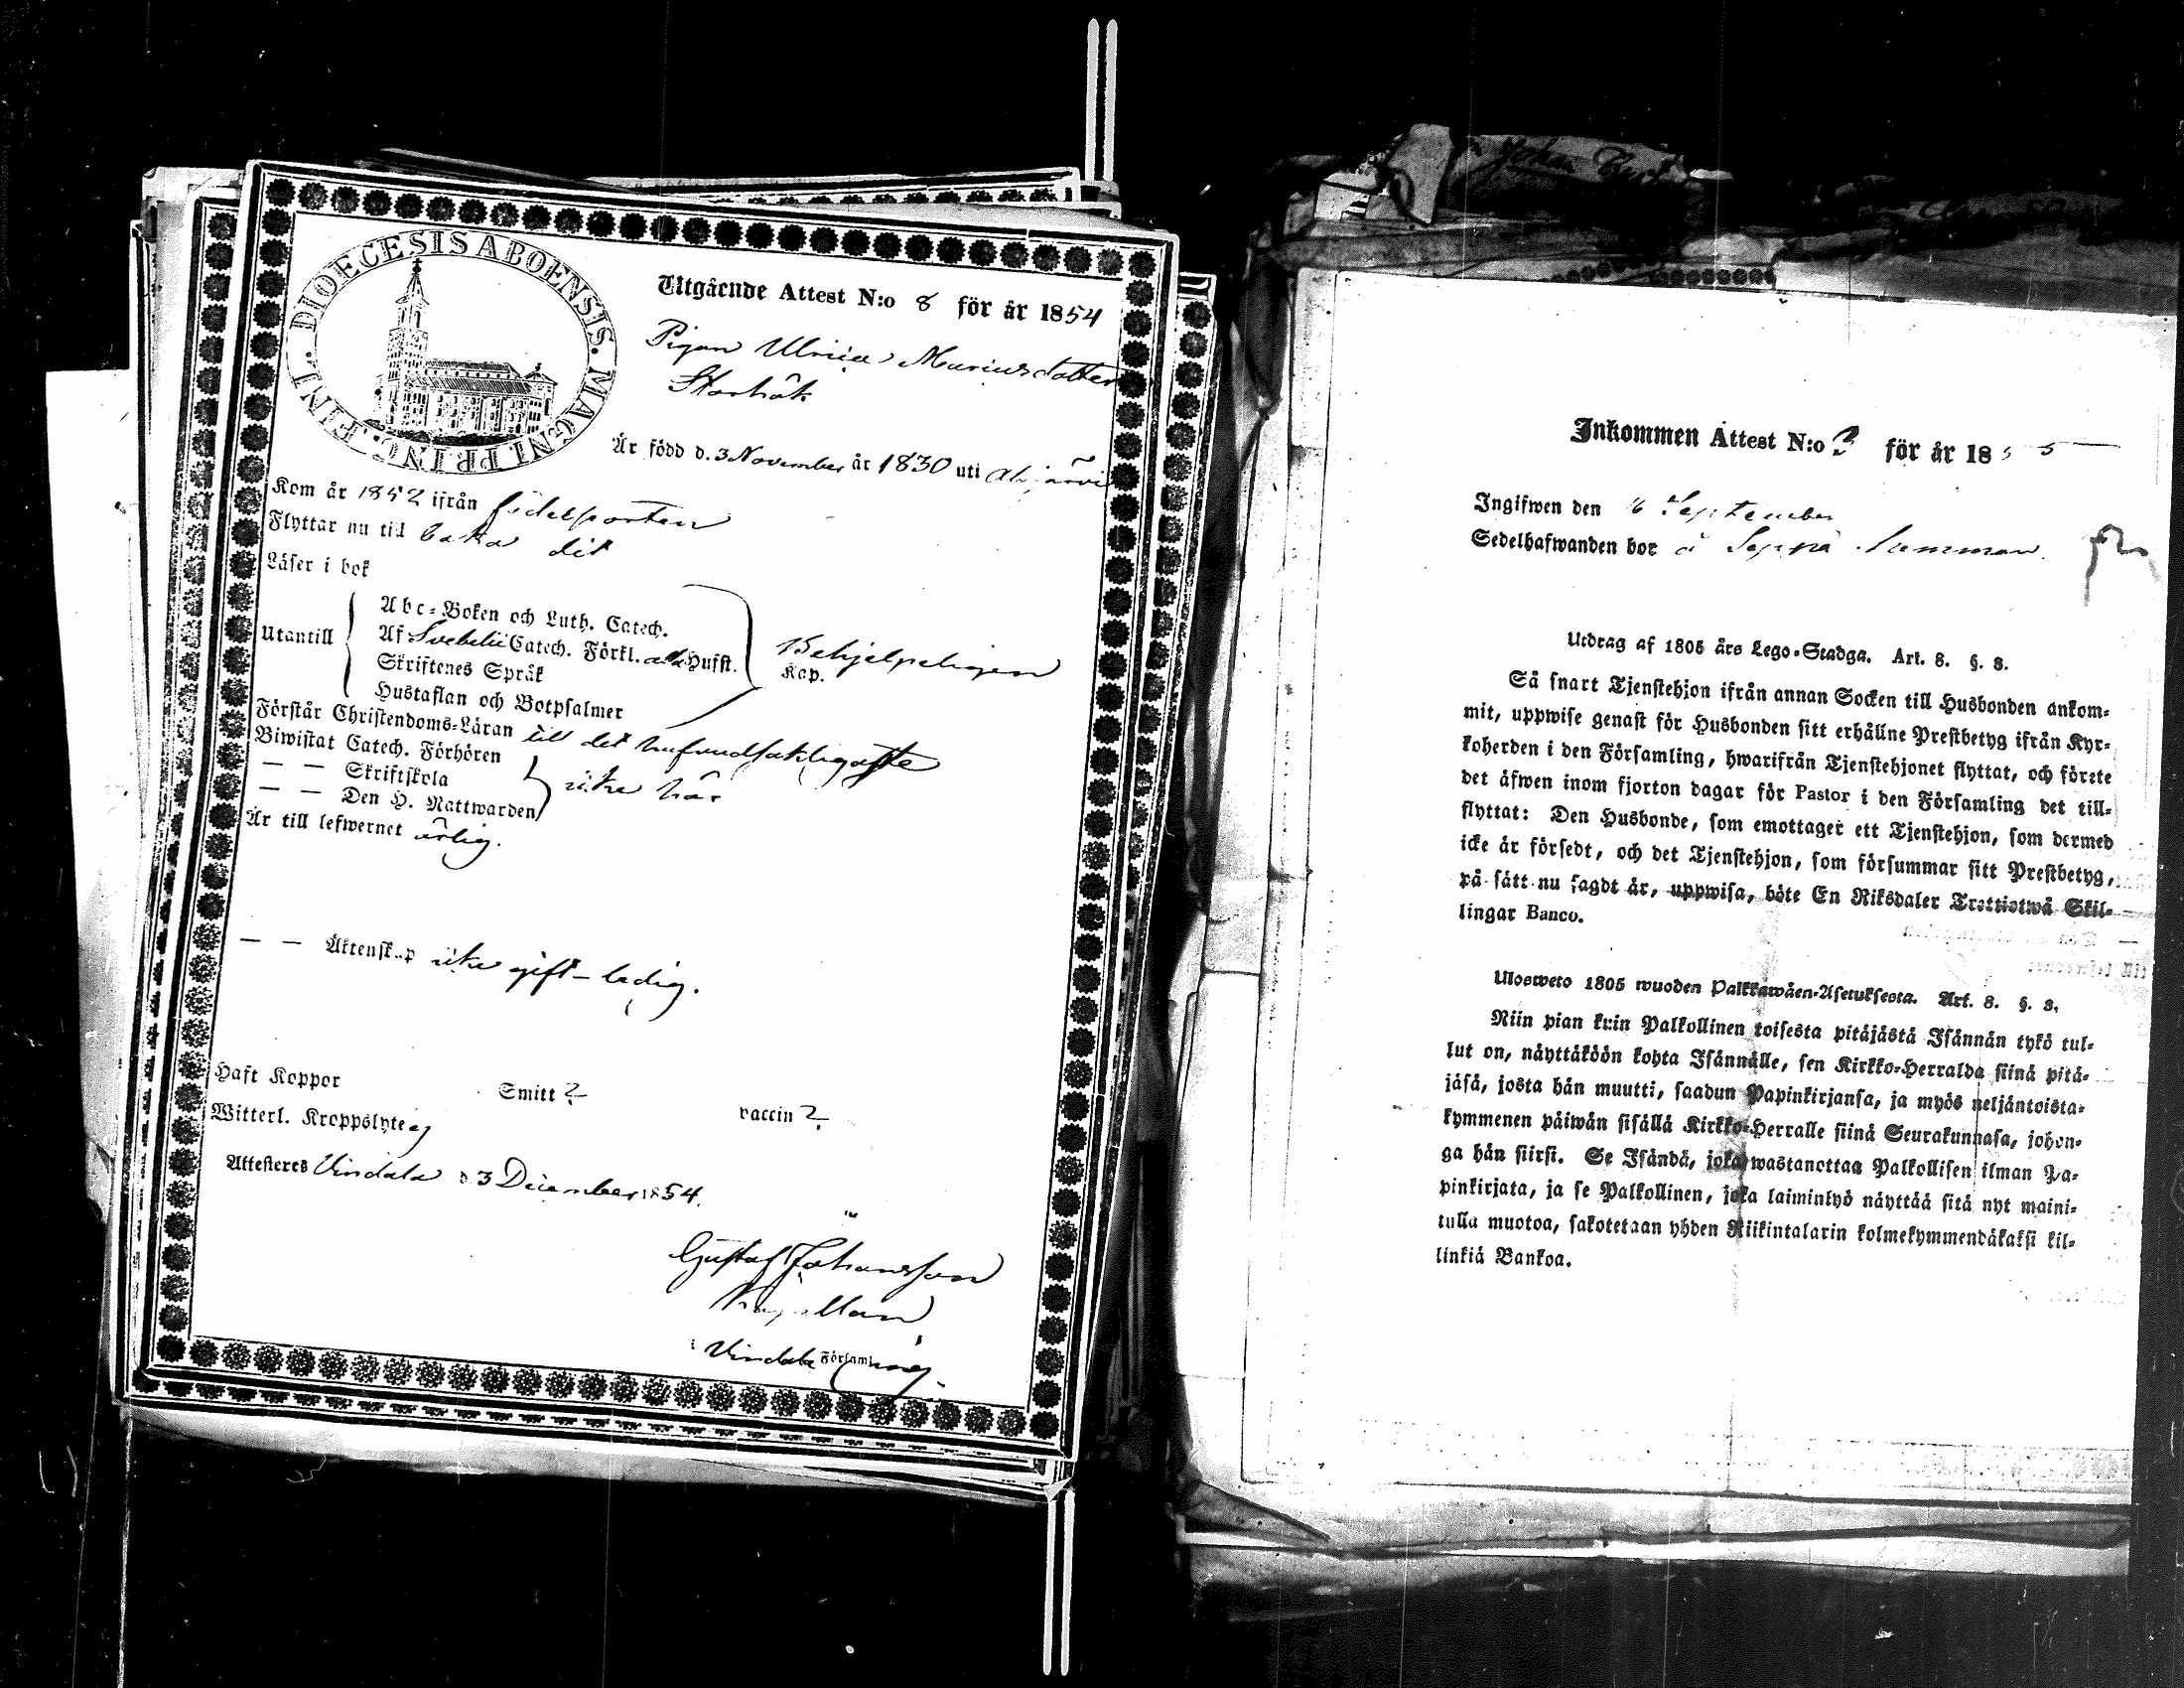 DIOECESIS ABOENSIS. MAGNI PRINC. FINL.
Utgående Attest N:o 8 för år 1854
Pigan Ulrica Mariusdotter
Storhök
Är född d. 3 November år 1830 uti Alajärvi
Kom år 1852 ifrån födelseorten
Flyttar nu till baka dit
Läser i bok
Utantill
Abc-Boken och Luth. Catech.
Af Svebelii Catech. Förkl. alla Hufst.
Skriftenes Språk
Hustaflan och Botpsalmer
Behjelpeligen
Kap.
Förstår Christendoms-Läran till det hufvudsakligaste
Biwistat Catech. Förhören
— — Skriftskola
— — Den H. Nattwarden
icke här
Är till lefwernet ärlig.
— — Äktenskap icke gift – ledig.
Haft Koppor Smitt ? vaccin ?
Witterl. Kroppslyte ej
Attesteres Vindala d 3 December 1854.
Gustaf Johansson
Kapellan
i Vindala Församling.
Inkommen Attest N:o 3 för år 1855
Ingifwen den 6 September
Sedelhafwanden bor å Seppä
Utdrag af 1805 års Lego-Stadga. Art. 8. §. 8.
Så snart Tjenstehjon ifrån annan Socken till Husbonden ankom-
mit, uppwise genast för Husbonden sitt erhållne Prestbetyg ifrån Kyr-
koherden i den Församling, hwarifrån Tjenstehjonet flyttat, och förete
det äfwen inom fjorton dagar för Pastor i den Församling det till-
flyttat: Den Husbonde, som emottager ett Tjenstehjon, som dermed
icke är försedt, och det Tjenstehjon, som försummar sitt Prestbetyg,
på sätt nu sagdt är, uppwisa, böte En Riksdaler Trettiotwå Skil-
lingar Banco.
Ulosweto 1805 wuoden Palkkawäen-Asetuksesta. Art. 8. §. 8.
Niin pian kuin Palkollinen toisesta pitäjästä Isännän tykö tul-
lut on, näyttäköön kohta Isännälle, sen Kirkko-Herralda siinä pitä-
jäsä, josta hän muutti, saadun Papinkirjansa, ja myös neljäntoista-
kymmenen päiwän sisällä Kirkko-Herralle siinä Seurakunnasa, johon-
ga hän siirsi. Se Isändä, joka wastanottaa Palkollisen ilman Pa-
pinkirjata, ja se Palkollinen, joka laiminlyö näyttää sitä nyt maini-
tulla muotoa, sakotetaan yhden Riikintalarin kolmekymmendäkaksi kil-
linkiä Bankoa.